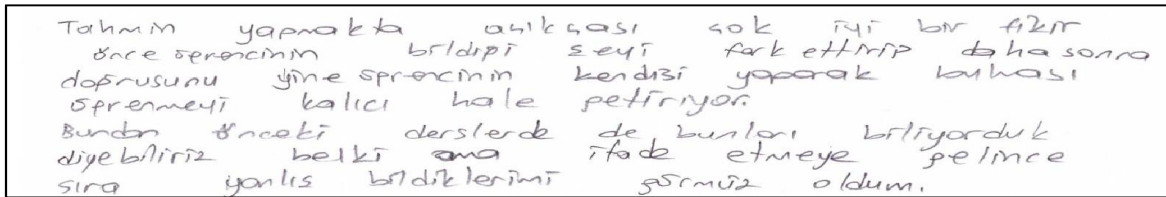 Tahmin yapmakta açıkçası çok iyi bir fikir
önce öğrencinin bildiği şeyi fark ettirip daha sonra
doğrusunu yine öğrencinin kendisi yaparak bulması
öğrenmeyi kalıcı hale getiriyor.
Bundan önceki derslerde de bunları biliyorduk
diyebiliriz belki ama ifade etmeye gelince
sıra yanlış bildiklerimi görmüş oldum.